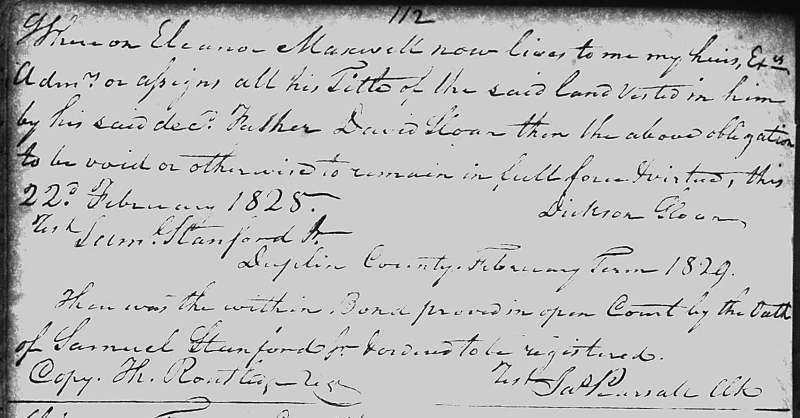 112
Whereon Eleanor Maxwell now lives to me my heirs, Exrs
Admrs or assigns all his Title of the said land vested in him
by his said decd. Father David Sloan then the above obligation
to be void or otherwise to remain in full force & virtue, this
22d February 1828.
Dickson Sloan
Test
Saml. Stanford Jr
Duplin County. February Term 1829.
Then was the within Bond proved in open Court by the Oath
of Samuel Stanford Jr & ordered to be registered.
Copy. Th. Routledge Regr
Test Jas Pearsall Clk